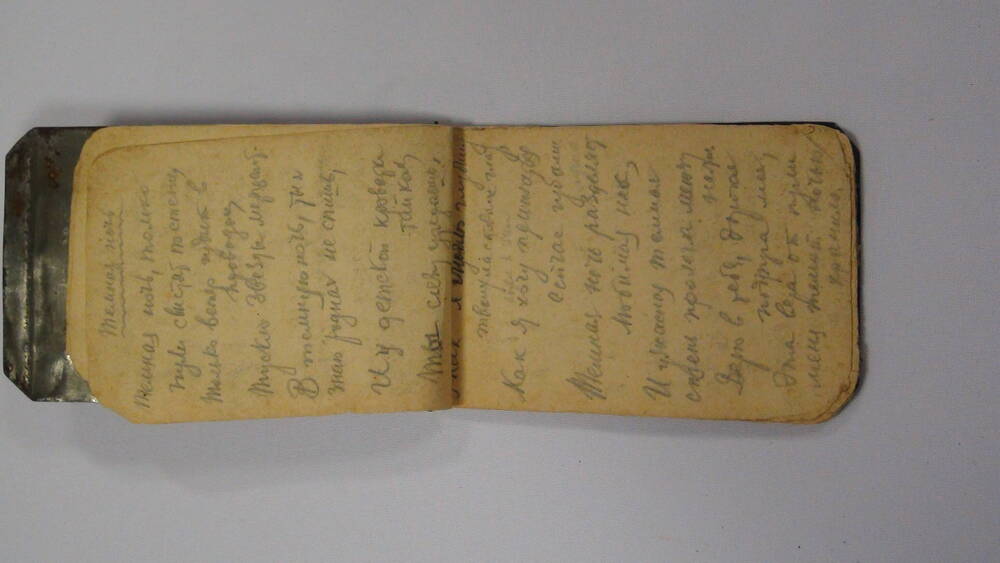 Темная ночь
Темная ночь, только
пули свистят по степи
Только ветер гудит в
проводах,
Тускло звезды мерцают.
В темную ночь, ты я
знаю родная не спишь,
И у детской кровати
тайком,
Ты слезу утираешь,
Как я люблю глубину
твоих ласковых глаз
Как я хочу прижаться
сейчас губами
Темная ночь разделяет
любимая нас,
И ужасная темная
степь пролегла между
нами.
Верю в тебя, дорогая
подруга моя,
Эта вера от пули
меня темной ночью
хранила